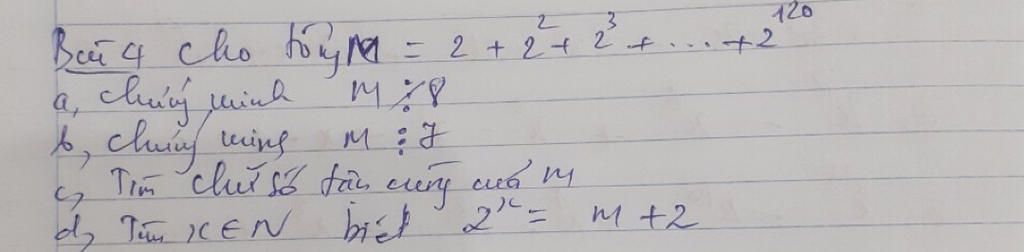 Bài 4 Cho tổng M = 2 + 2² + 2³ + ... + 2¹²⁰
a, chứng minh M ⋮̸ 8
b, chứng minh M ⋮ 7
c, Tìm chữ số tận cùng của M
d, Tìm x ∈ N biết 2ˣ = M + 2